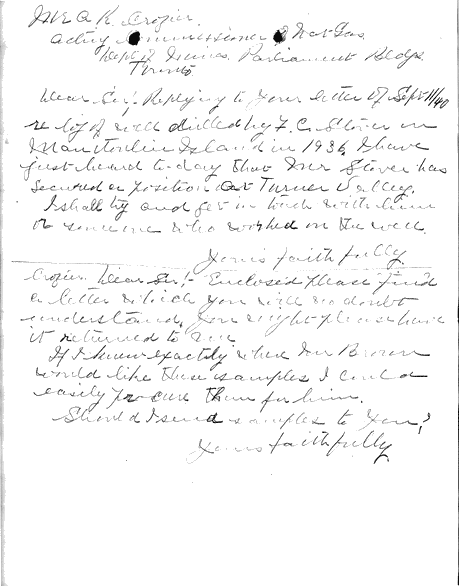 Mr A. R. Crozier.
Acting Commissioner of Nat Gas
Dept of Mines. Parliament Bldgs.
Toronto
Dear Sir:- Replying to your letter of Sept 11/40
re log of well drilled by F. C. Stover on
Manitoulin Island in 1936, I have
just heard to-day that Mr Stover has
secured a position at Turner Valley.
I shall try and get in touch with him
or someone who worked on the well.
Yours faithfully.
Crozier. Dear Sir:- Enclosed please find
a letter which you will no doubt
understand. You might please have
it returned to me.
If I knew exactly what Mr Brown
would like these samples I could
easily procure them for him.
Should I send samples to you?
Yours faithfully